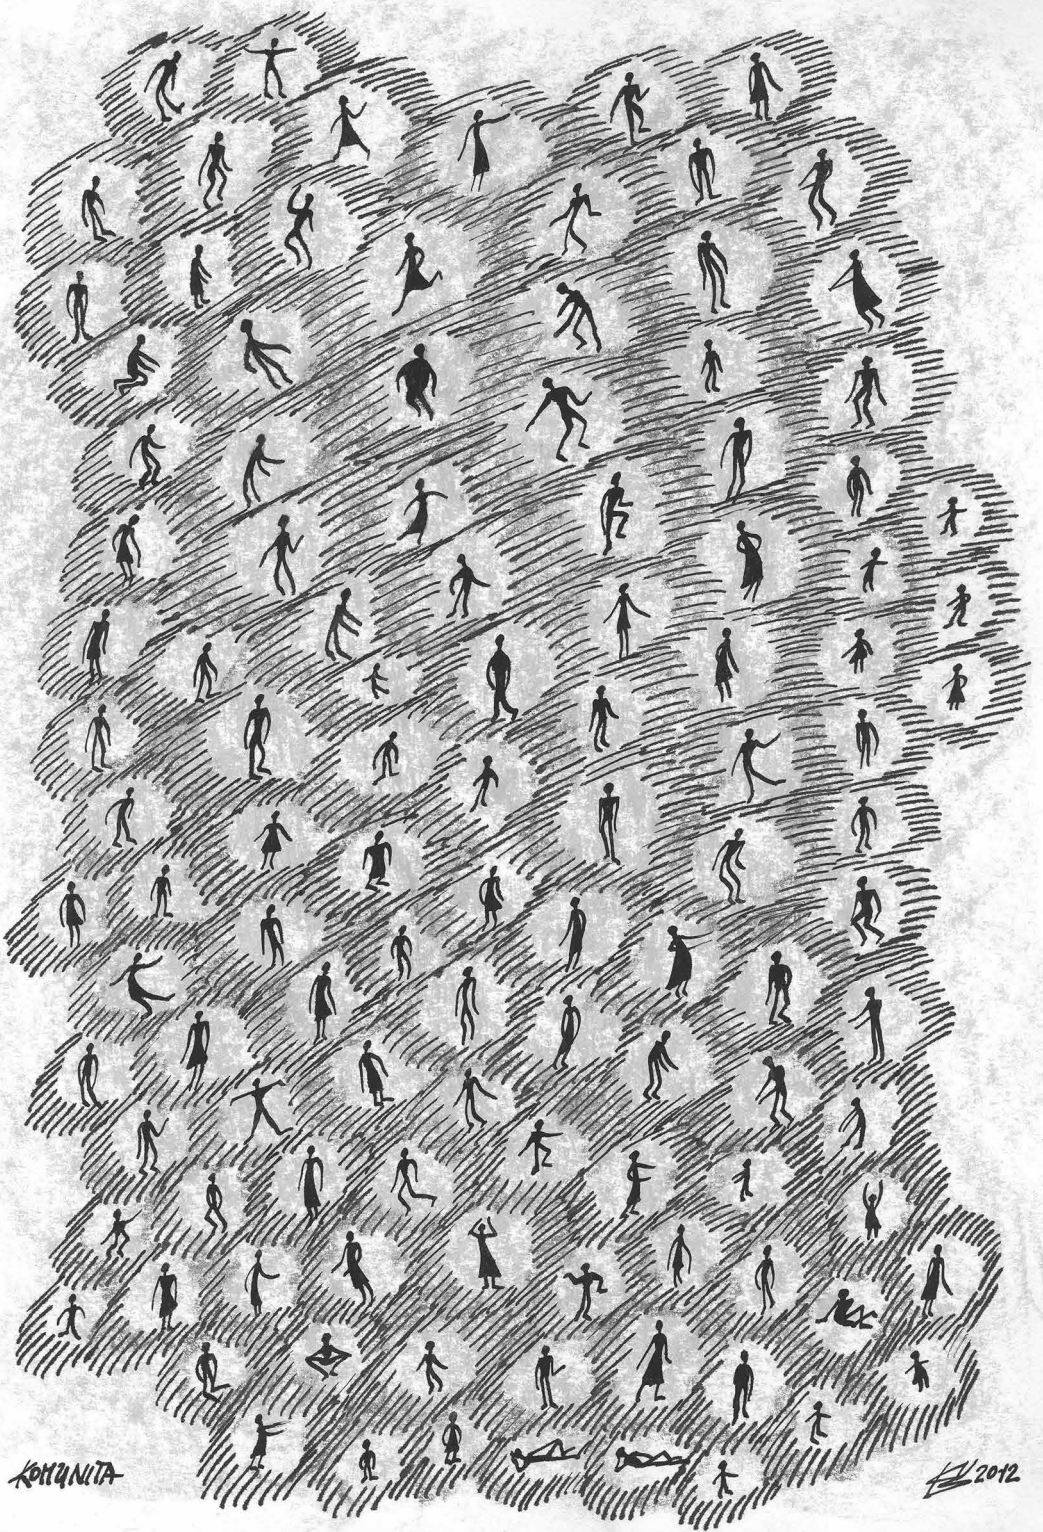 KOMUNITA
2012